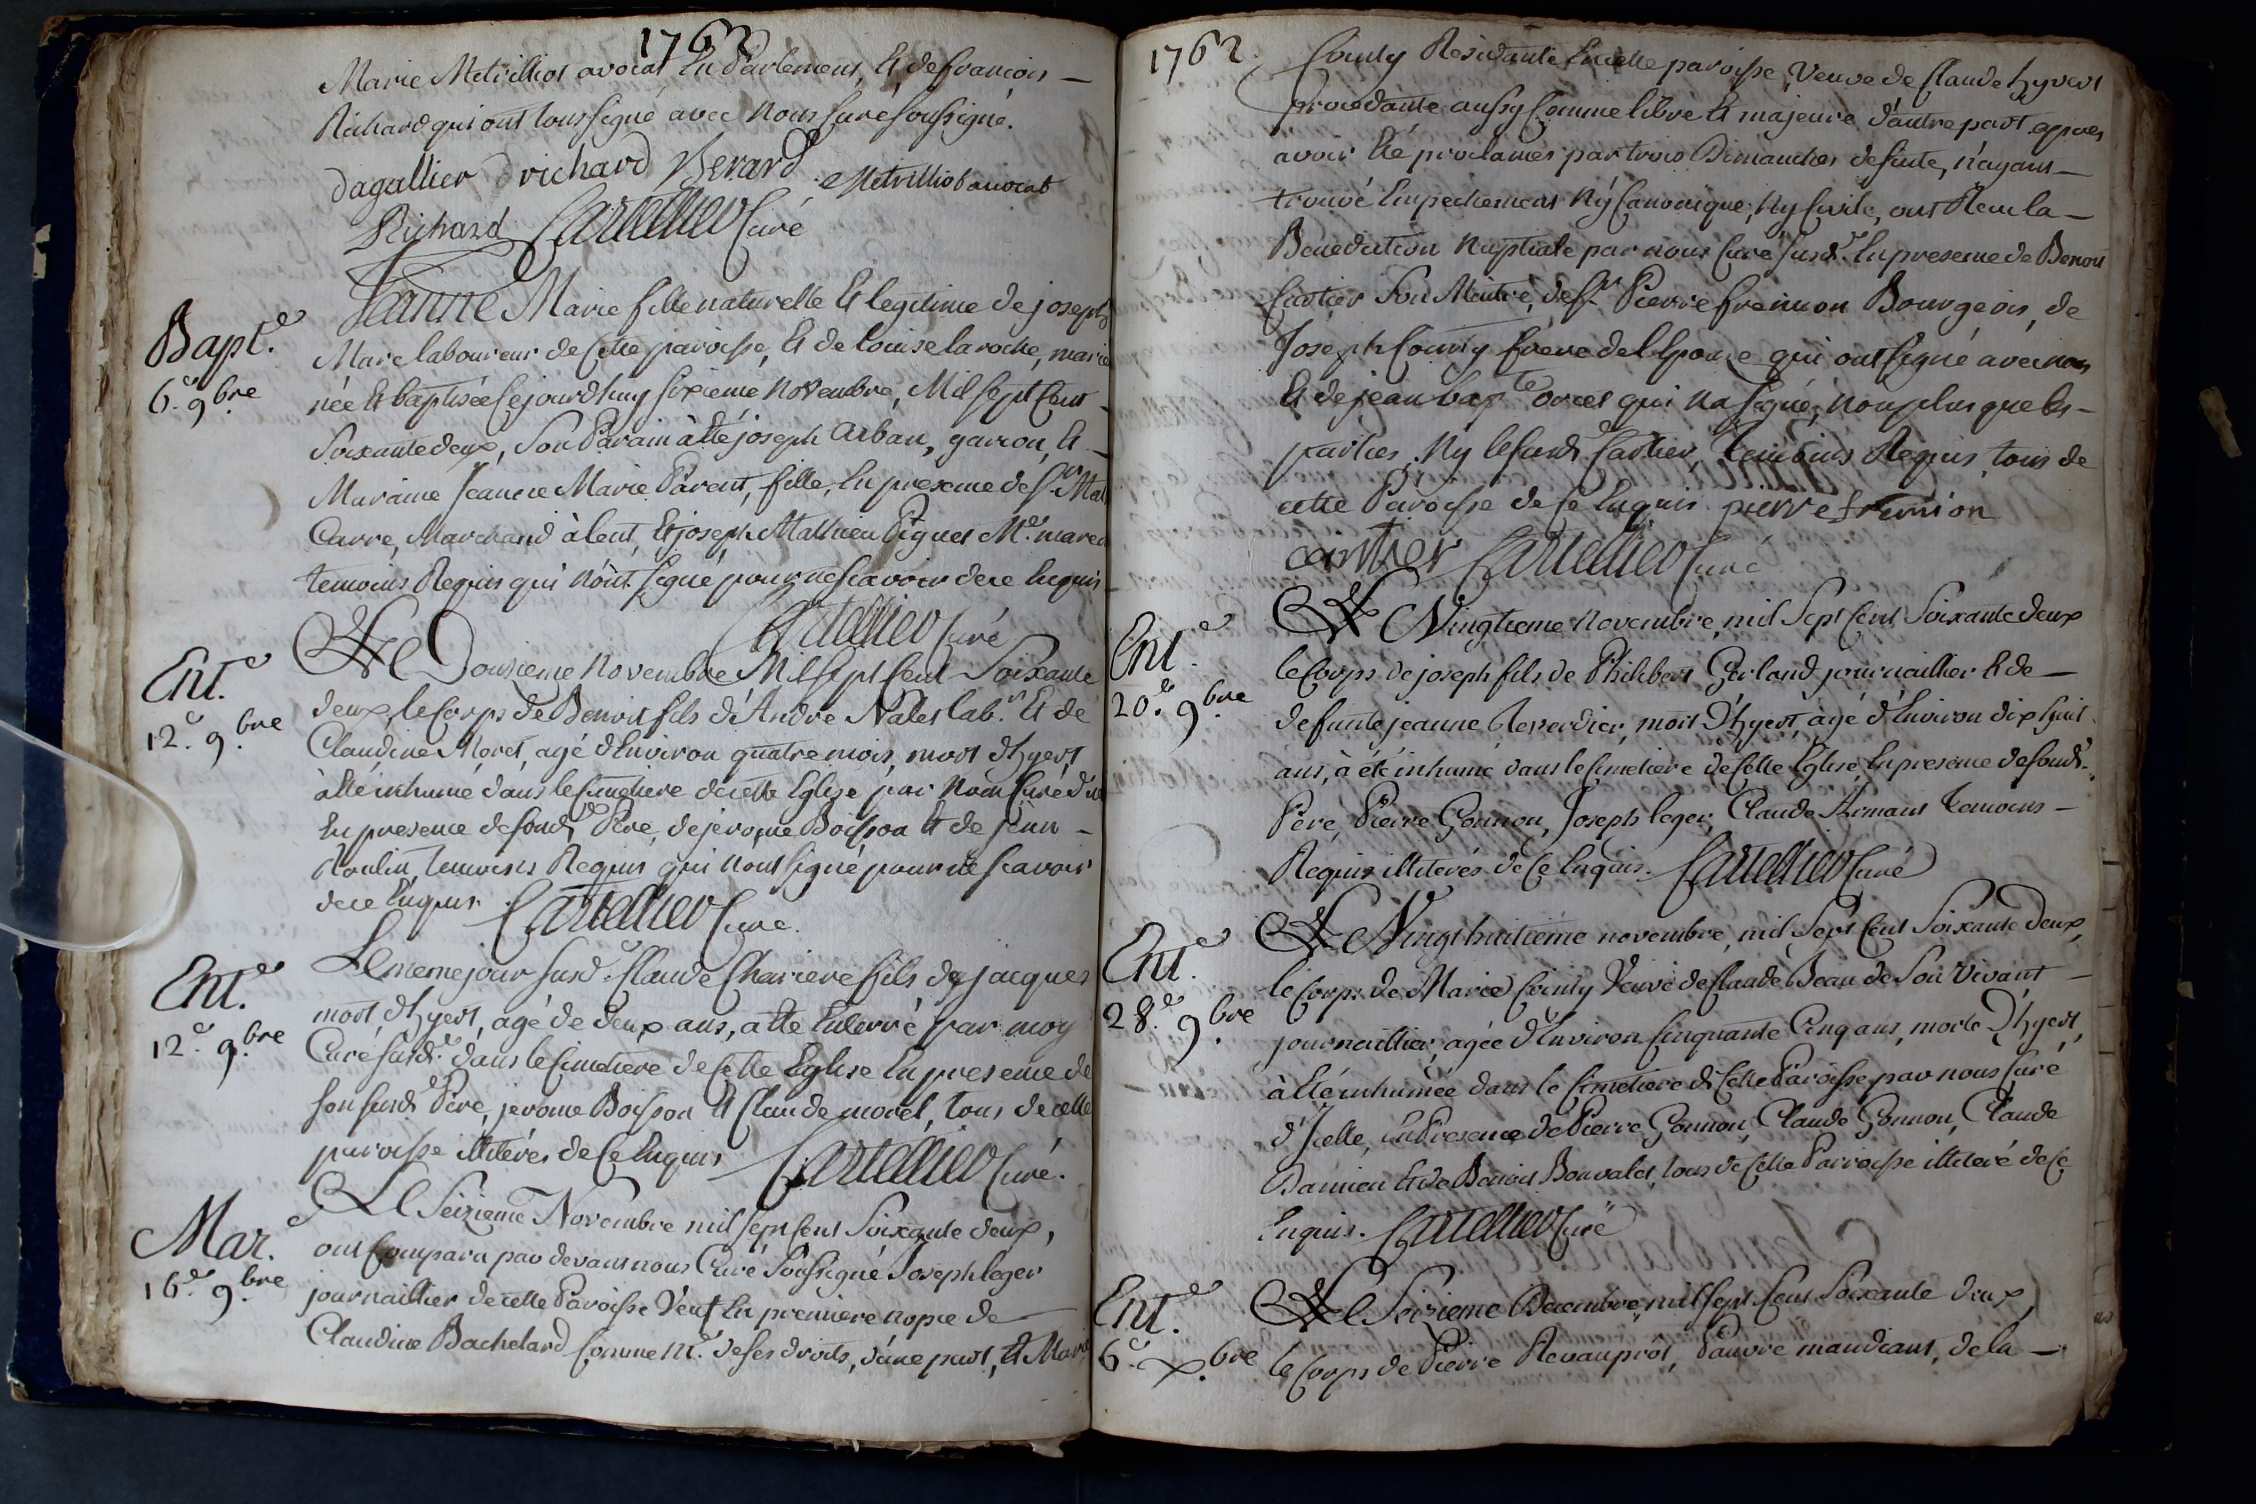 1762
Marie Metrillot avocat En Parlement, Et de francois
Richard qui ont tous signé avec Nous Curé soussigné.
Dagallier D richard Berard Metrilliot avocat
Richard Cartellier Curé
Bapt.e
6.e 9.bre
Jeanne Marie fille naturelle Et legitime de joseph
Mare laboureur de Cette paroisse, Et de Louise laroche, mariés
née Et baptisée Cejourdhuy sixieme Novembre, Mil sept Cent
Soixante deux, Son Parain à Eté joseph Arban, garcon, Et
Maraine Jeanne Marie Parent, fille, En presence de Sr
Carre, Marchand à lent, Et joseph Mathieu Piquet Me. mare
temoins Requis qui N'ont signé pour ne scavoir de ce Enquis
Cartellier Curé
Ent.e
12.e 9.bre
Le Douzieme Novembre Mil sept Cent Soixante
deux, le Corps de Benoit fils d'André Nalet lab.r Et de
Claudine Moret, agé d'Environ quatre mois, mort d'hyert,
à Eté inhumé dans le Cimetiere de cette Eglise par Nous Curé
En presence de sond. Pere, de jerome Boisson Et de jean
Roulin, temoins Requis qui N'ont signé pour ne scavoir
de ce Enquis. Cartellier Curé.
Ent.e
12.e 9.bre
Le meme jour susd. Claude Chariere fils de jacques
mort d'hyert, agé de deux ans, a Eté Enterré par moy
Curé susd. dans le Cimetiere de Cette Eglise En presence de
son susd. Pere, jerome Boisson Et Claude morel, tous de cette
paroisse illiterés de Ce Enquis Cartellier Curé.
Mar.e
16.e 9.bre
Le Seizieme Novembre mil sept Cent Soixante deux,
ont Comparu par devant nous Curé Soussigné Joseph leger
journaillier de cette Paroisse Veuf En premiere nopce de
Claudine Bachelard Comme M.e de ses droits, d'une part, Et Marie
1762.
Couty Residante En cette paroisse, Veuve de Claude hyvert
procedante aussy Comme libre Et majeure d'autre part apres
avoir Eté proclamés par trois Dimanches de suite, n'ayant
trouvé Empechement Ny Canonique, Ny Civile, ont Recu la
Benediction Nuptiale par nous Curé susd. En presence de Benoit
Cartier Son Maitre, de Sr Pierre fremion Bourgeois, de
Joseph Couty frere de l'Epouse qui ont signé avec nous
Et de jean bapte orcet qui N'a signé, Non plus que les
parties, Ny le susd. Cartier, temoins Requis tous de
cette Paroisse de Ce Enquis pierre fremion
cartier Cartellier Curé
Ent.e
20.e 9.bre
Le Vingtieme Novembre, mil Sept Cent Soixante deux
le Corps de joseph fils de Philibert Gerland journaillier Et de
defunte jeanne Teverdier, mort D'hyert, agé d'Environ dix huit
ans, à été inhumé dans le Cimetiere de Cette Eglise, En presence de sond.
Pere, Pierre Gonnon, Joseph leger, Claude Armant temoins
Requis illiterés de Ce Enquis. Cartellier Curé
Ent.e
28.e 9.bre
Le Vingt huitieme novembre, mil Sept Cent Soixante Deux,
le Corps de Marie Couty Veuve de Claude Beau de Son Vivant
journaillier, agée d'Environ Cinquante Cinq ans, morte D'hyert,
à Eté inhumée dans le Cimetiere de Cette Paroisse par nous Curé
d'Icelle, En Presence de Pierre Gonnon, Claude Gonnon, Claude
Damien Et de Benoit Bonvalet, tous de Cette Parroisse illiteré de Ce
Enquis. Cartellier Curé
Ent.e
6.e X.bre
Le Seizieme Decembre, mil sept Cent Soixante Deux,
le Corps de Pierre Revauprôt, Pauvre mandiant, de la